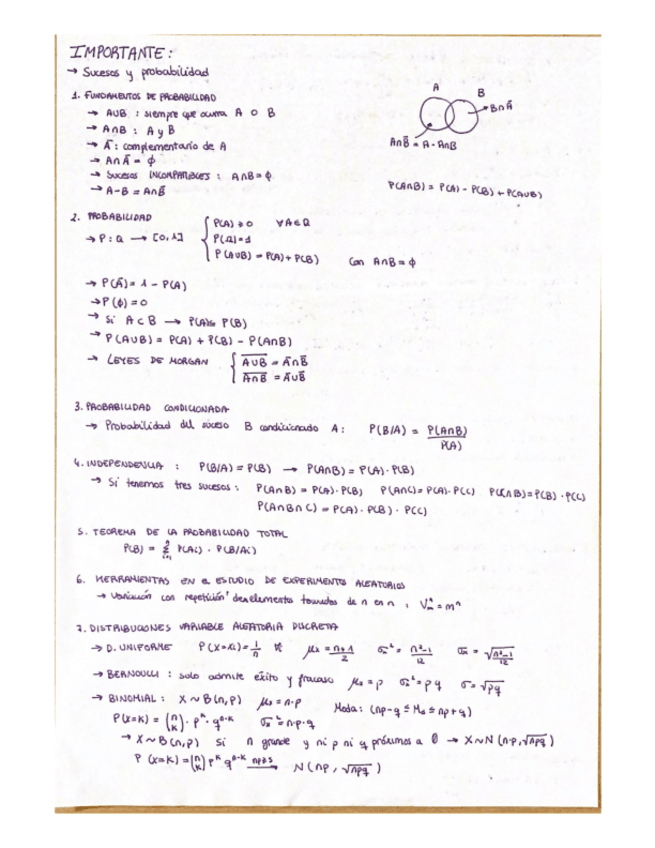 IMPORTANTE:
→ Sucesos y probabilidad
1. FUNDAMENTOS DE PROBABILIDAD
→ A∪B : siempre que ocurra A o B
→ A∩B : A y B
→ Ā : complementario de A
→ A∩Ā = ϕ
→ Sucesos INCOMPATIBLES : A∩B=ϕ
→ A-B = A∩B̄
A B
B∩Ā
A∩B̄ = A - A∩B
P(A∩B) = P(A) - P(B) + P(A∪B)
2. PROBABILIDAD
→ P: Ω → [0,1] { P(A) ≥ 0 ∀A∈Ω
P(Ω)=1
P(A∪B) = P(A) + P(B) Con A∩B = ϕ
→ P(Ā) = 1 - P(A)
→ P(ϕ) = 0
→ Si A⊂B → P(A)≤ P(B)
→ P(A∪B) = P(A) + P(B) - P(A∩B)
→ LEYES DE MORGAN { \overline{A∪B} = Ā∩B̄
\overline{A∩B} = Ā∪B̄
3. PROBABILIDAD CONDICIONADA
→ Probabilidad del suceso B condicionado A: P(B/A) = P(A∩B)
P(A)
4. INDEPENDENCIA : P(B/A) = P(B) → P(A∩B) = P(A)·P(B)
→ Si tenemos tres sucesos: P(A∩B) = P(A)·P(B) P(A∩C)=P(A)·P(C) P(C∩B)=P(B)·P(C)
P(A∩B∩C) = P(A)·P(B)·P(C)
5. TEOREMA DE LA PROBABILIDAD TOTAL
P(B) = Σ P(Ai) · P(B/Ai)
6. HERRAMIENTAS EN EL ESTUDIO DE EXPERIMENTOS ALEATORIOS
→ Variación con repetición de elementos tomados de n en n : = mⁿ
7. DISTRIBUCIONES VARIABLE ALEATORIA DISCRETA
→ D. UNIFORME P(X=xi) = 1/n μx = n+1/2 σx² = n²-1/12 σx = √n²-1/12
→ BERNOULLI : solo admite éxito y fracaso μx = p σx² = pq σ = √pq
→ BINOMIAL : X ~ B(n,p) μx = n·p Moda: (np-q ≤ Mo ≤ np+q)
P(X=K) = (n K) · p^K · q^n-K σx² = n·p·q
→ X~B(n,p) si n grande y ni p ni q próximos a 0 → X~N (n·p,√npq)
P (X=K) = (n K) p^K q^n-K np≥5 → N(np, √npq)